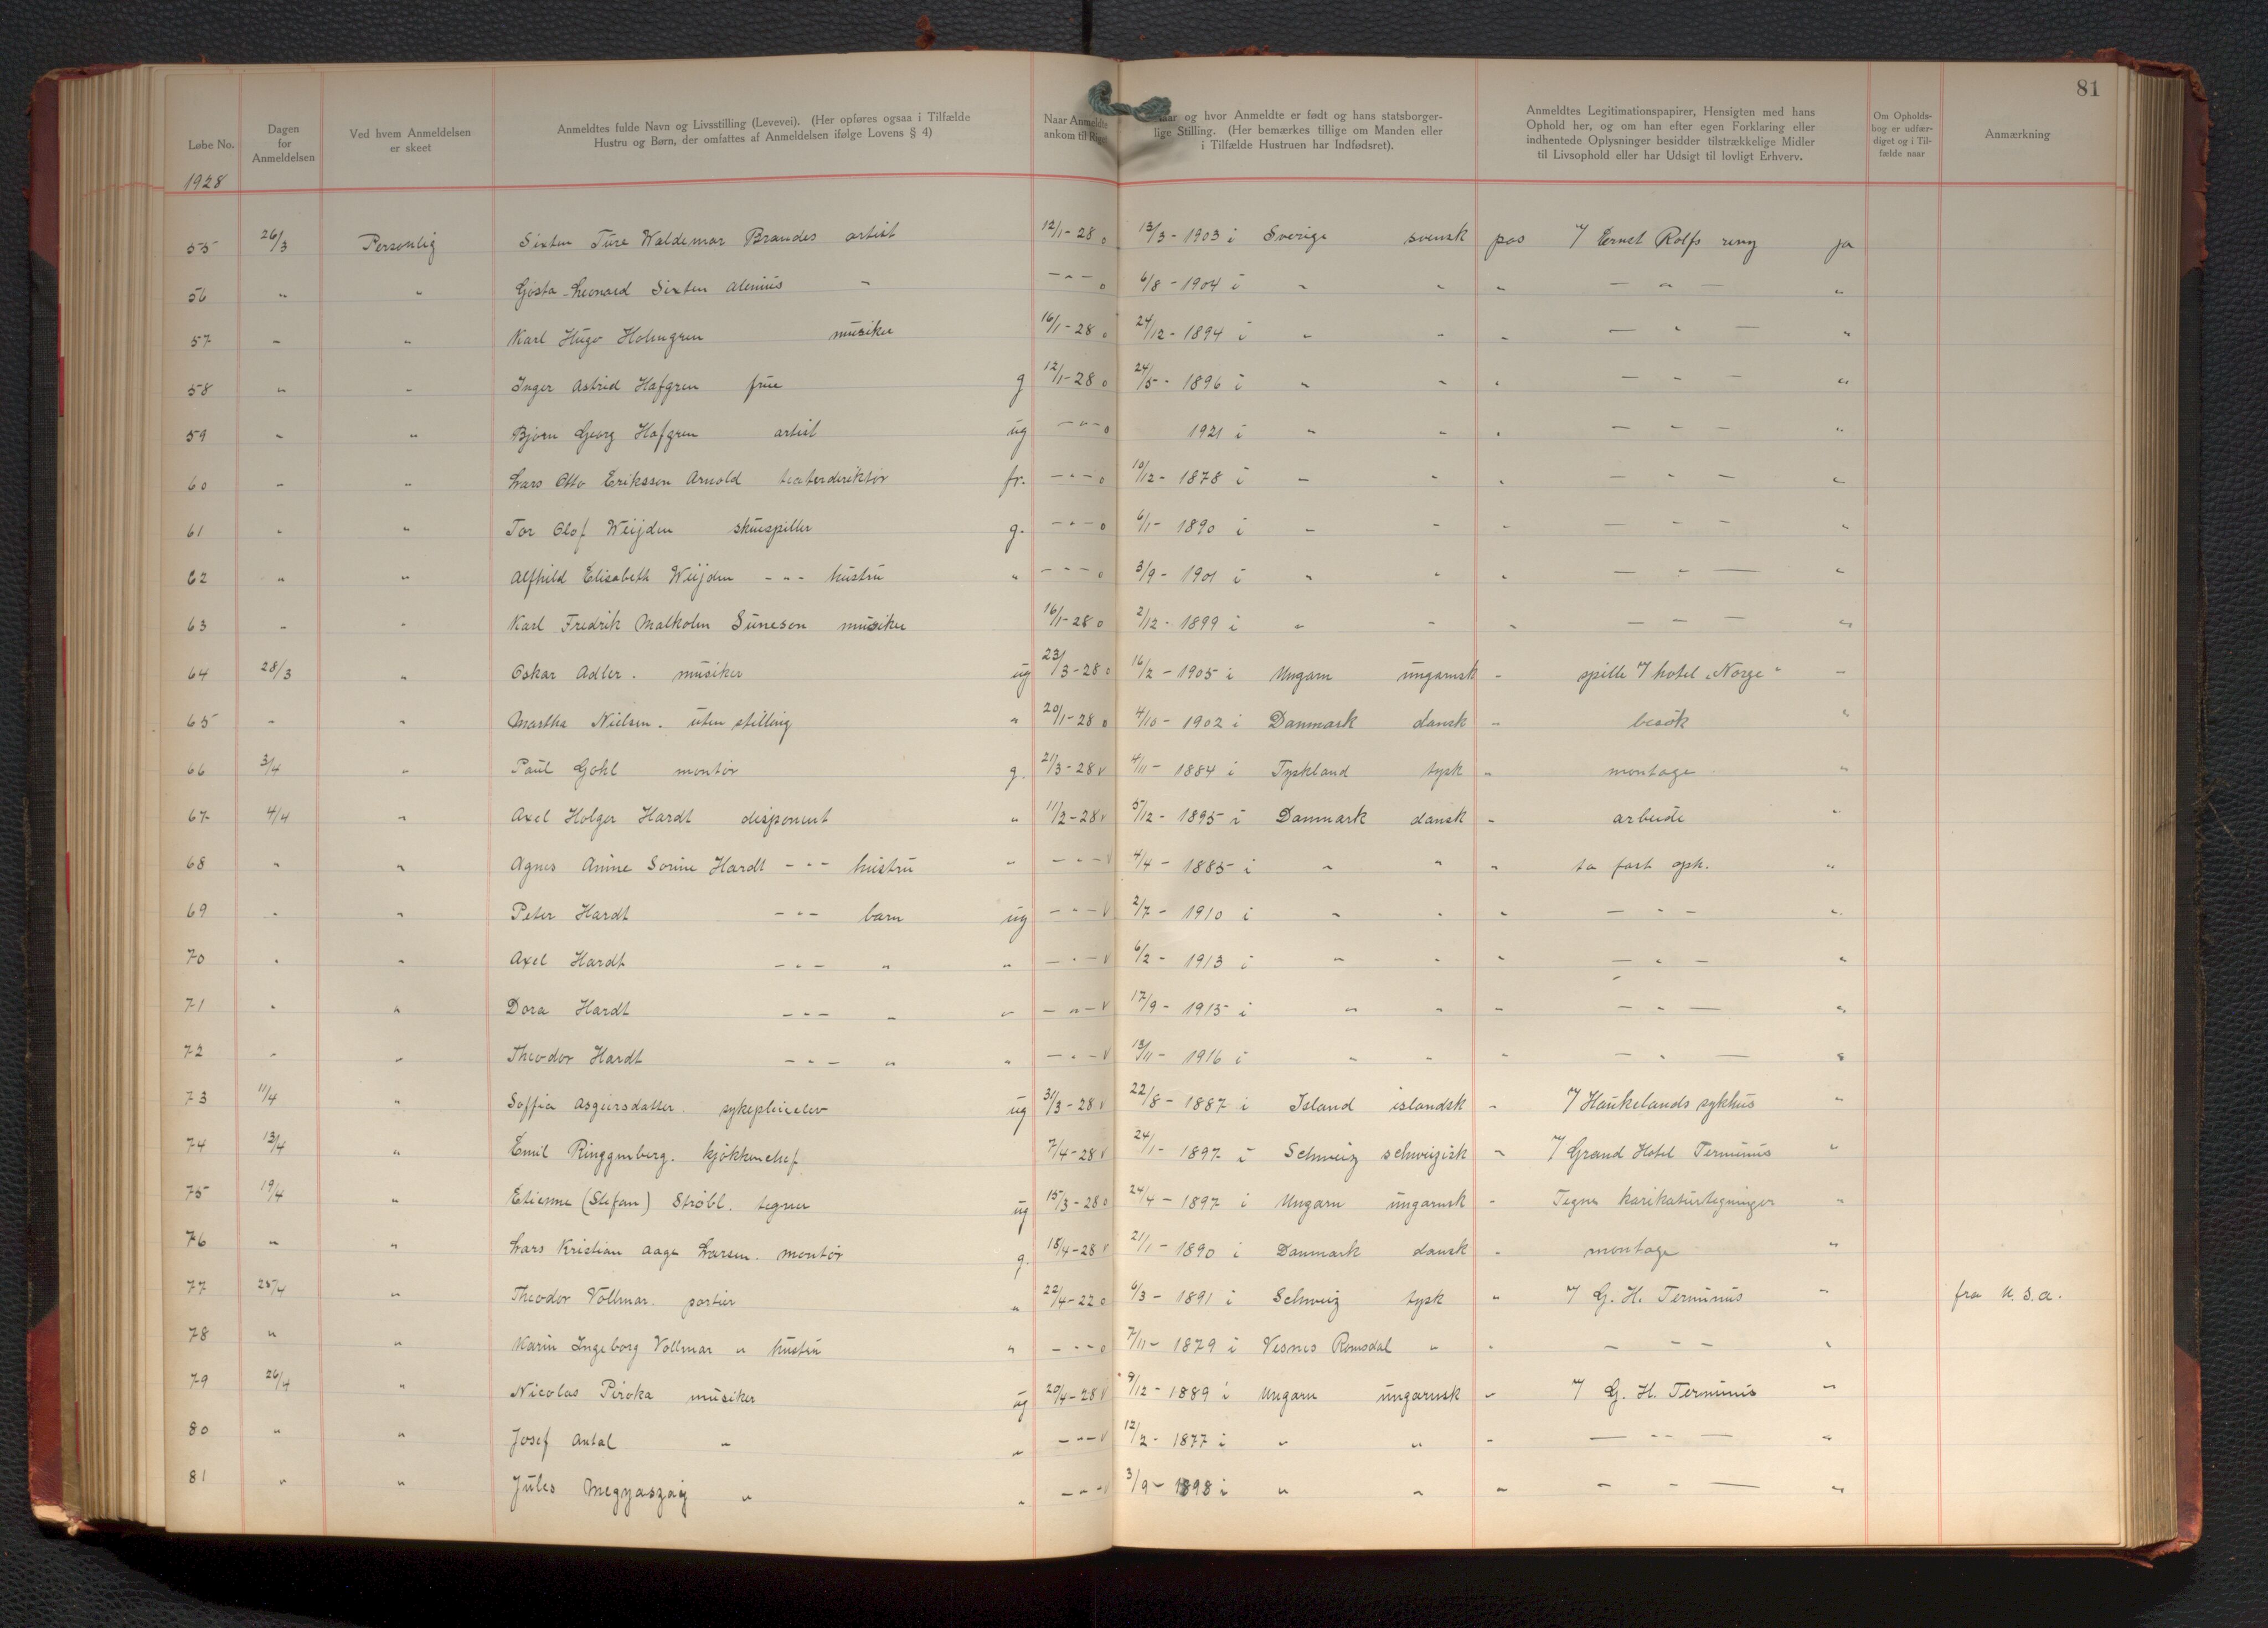 81
Løbe No. | Dagen for Anmeldelsen | Ved hvem Anmeldelsen er skeet | Anmeldtes fulde Navn og Livsstilling (Levevei). (Her opføres ogsaa i Tilfælde Hustru og Børn, der omfattes af Anmeldelsen ifølge Lovens § 4) | Naar Anmeldte ankom til Riget | og hvor Anmeldte er født og hans statsborgerlige Stilling. (Her bemærkes tillige om Manden eller i Tilfælde Hustruen har Indfødsret). | Anmeldtes Legitimationspapirer, Hensigten med hans Ophold her, og om han efter egen Forklaring eller indhentede Oplysninger besidder tilstrækkelige Midler til Livsophold eller har Udsigt til lovligt Erhverv. | Om Opholdsbog er udfærdiget og i Tilfælde naar | Anmærkning
1928
55 26/3 Personlig Sixten Ture Waldemar Brandes artist 12/1-28 o 13/3-1903 i Sverige svensk pas v/ Ernst Rolfs revy ja
56 " " Gösta Leonard Sixten Alenius " - " - o 6/8-1904 i " " " - " - "
57 " " Karl Hugo Holmgren musiker 16/1-28 o 24/12-1894 i " " " - " - "
58 " " Inger Astrid Hafgren frue g 12/1-28 o 24/5-1896 i " " " - " - "
59 " " Bjørn Georg Hafgren artist ug - " - o 1921 i " " " - " - "
60 " " Lars Otto Eriksson Arnold teaterdirektör fr. - " - o 10/12-1878 i " " " - " - "
61 " " Tor Olof Weijden skuespiller g. - " - o 6/1-1890 i " " " - " - "
62 " " Alfhild Elisabeth Weijden - " - hustru " - " - o 3/9-1901 i " " " - " - "
63 " " Karl Fredrik Malkolm Suneson musiker 16/1-28 o 2/12-1899 i " " " - " - "
64 28/3 " Oskar Adler. musiker ug 23/3-28 o 16/2-1905 i Ungarn ungarnsk " spille v/ hotel "Norge" "
65 " " Martha Nielsen. uten stilling " 20/1-28 o 4/10-1902 i Danmark dansk " besök "
66 3/4 " Paul Gohl montör g. 21/3-28 v 4/11-1884 i Tyskland tysk " montage "
67 4/4 " Axel Holger Hardt disponent " 11/2-28 v 5/12-1895 i Danmark dansk " arbeide "
68 " " Agnes Anine Sorine Hardt - " - hustru " - " - v 4/4-1885 i " " " ta fast oph. "
69 " " Peter Hardt - " - barn ug - " - v 2/7-1910 i " " " - " - "
70 " " Axel Hardt - " - " " - " - v 6/2-1913 i " " " - " - "
71 " " Dora Hardt - " - " " - " - v 17/9-1915 i " " " - " - "
72 " " Theodor Hardt - " - " " - " - v 13/11-1916 i " " " - " - "
73 11/4 " Soffia Asgeirsdatter. sykepleieelev ug 31/3-28 v 22/8-1887 i Island islandsk " v/ Haukelands sykhus "
74 13/4 " Emil Ringgenberg. kjökkenchef 7/4-28 v 24/1-1897 i Schweiz schweizisk " v/ Grand Hotel Terminus "
75 19/4 " Etienne (Stefan) Ströbl. tegner ug 15/3-28 o 24/4-1897 i Ungarn ungarnsk " Tegne karikaturtegninger "
76 " " Lars Kristian Aage Larsen. montör g. 18/4-28 v 21/1-1890 i Danmark dansk " montage "
77 25/4 " Theodor Vollmar. portier " 22/4-22 o 6/3-1891 i Schweiz tysk " v/ G. H. Terminus " fra U.S.A.
78 " " Karin Ingeborg Vollmar " hustru " - " - o 7/11-1879 i Vesnes Romsdal " " - " - "
79 26/4 " Nicolas Piroka musiker ug 20/4-28 v 9/12-1889 i Ungarn ungarnsk " v/ G. H. Terminus "
80 " " Josef Antal " " - " - v 12/2-1877 i " " " - " - "
81 " " Jules Megyaszay " " - " - v 3/9-1898 i " " " - " - "